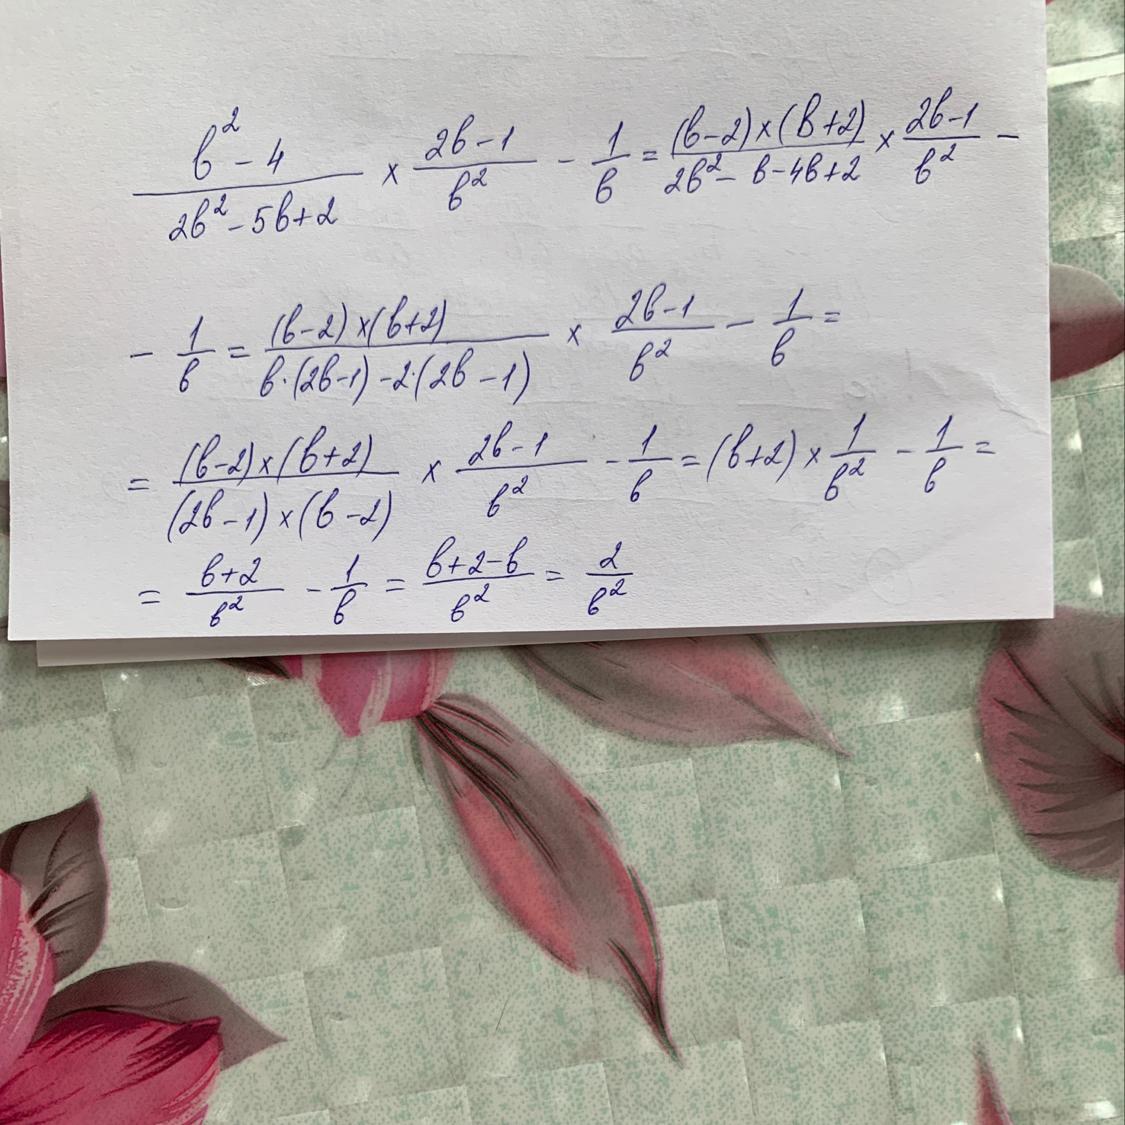 (b² - 4)/(2b² - 5b + 2) × (2b - 1)/b² - 1/b = ((b - 2) × (b + 2))/(2b² - b - 4b + 2) × (2b - 1)/b² -
- 1/b = ((b - 2) × (b + 2))/(b·(2b - 1) - 2·(2b - 1)) × (2b - 1)/b² - 1/b =
= ((b - 2) × (b + 2))/((2b - 1) × (b - 2)) × (2b - 1)/b² - 1/b = (b + 2) × 1/b² - 1/b =
= (b + 2)/b² - 1/b = (b + 2 - b)/b² = 2/b²